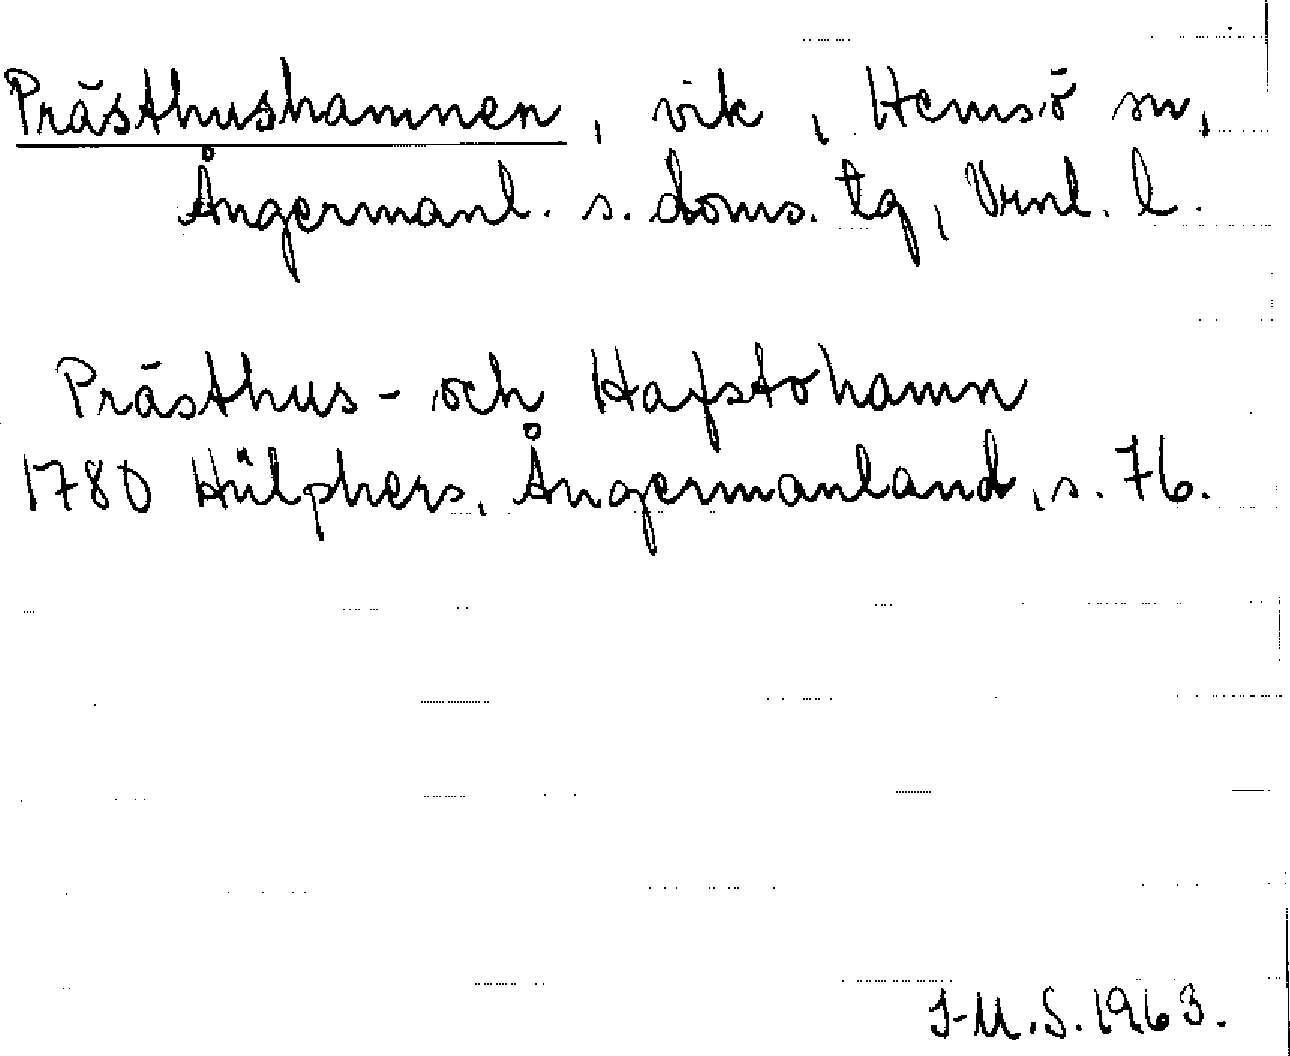 Prästhushamnen, vik, Hemsö sn,
Ångermanl. s. doms. tg, Vrnl. l.
Prästhus- och Hafstohamn
1780 Hülphers, Ångermanland, s. 76.
I-M.S. 1963.